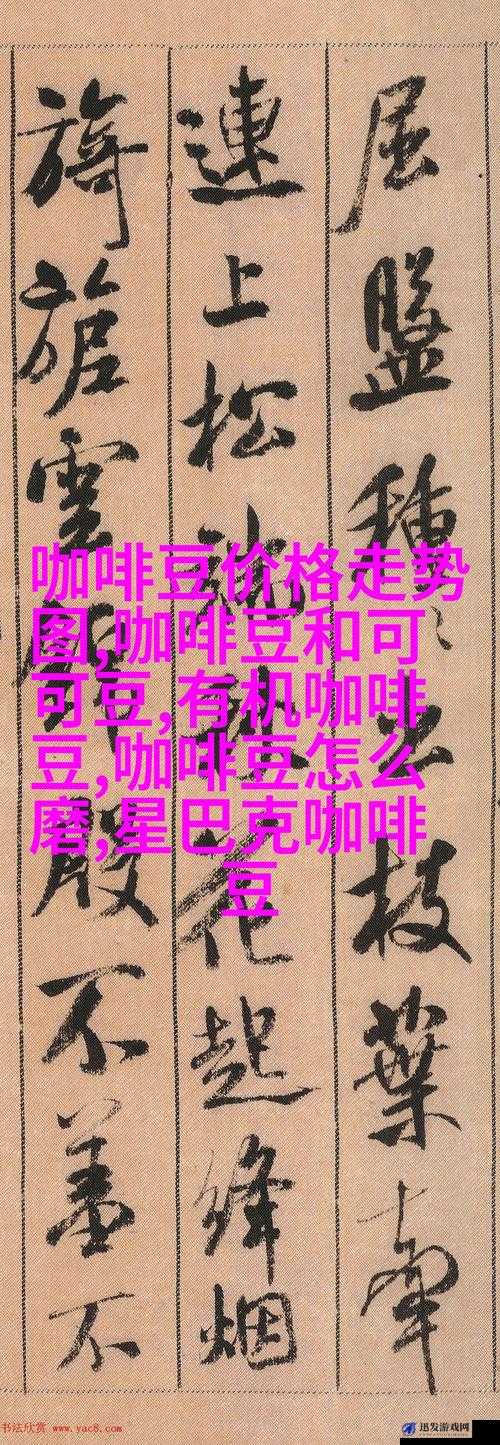 屈盤種〻出枝葉牽
連上松端秋花起絳烟
旖旎雲錦殷不羞不
咖啡豆价格走势
图,咖啡豆和可
可豆,有机咖啡
豆,咖啡豆怎么
磨,星巴克咖啡
豆
书法欣赏 www.yac8.com
迅发游戏网